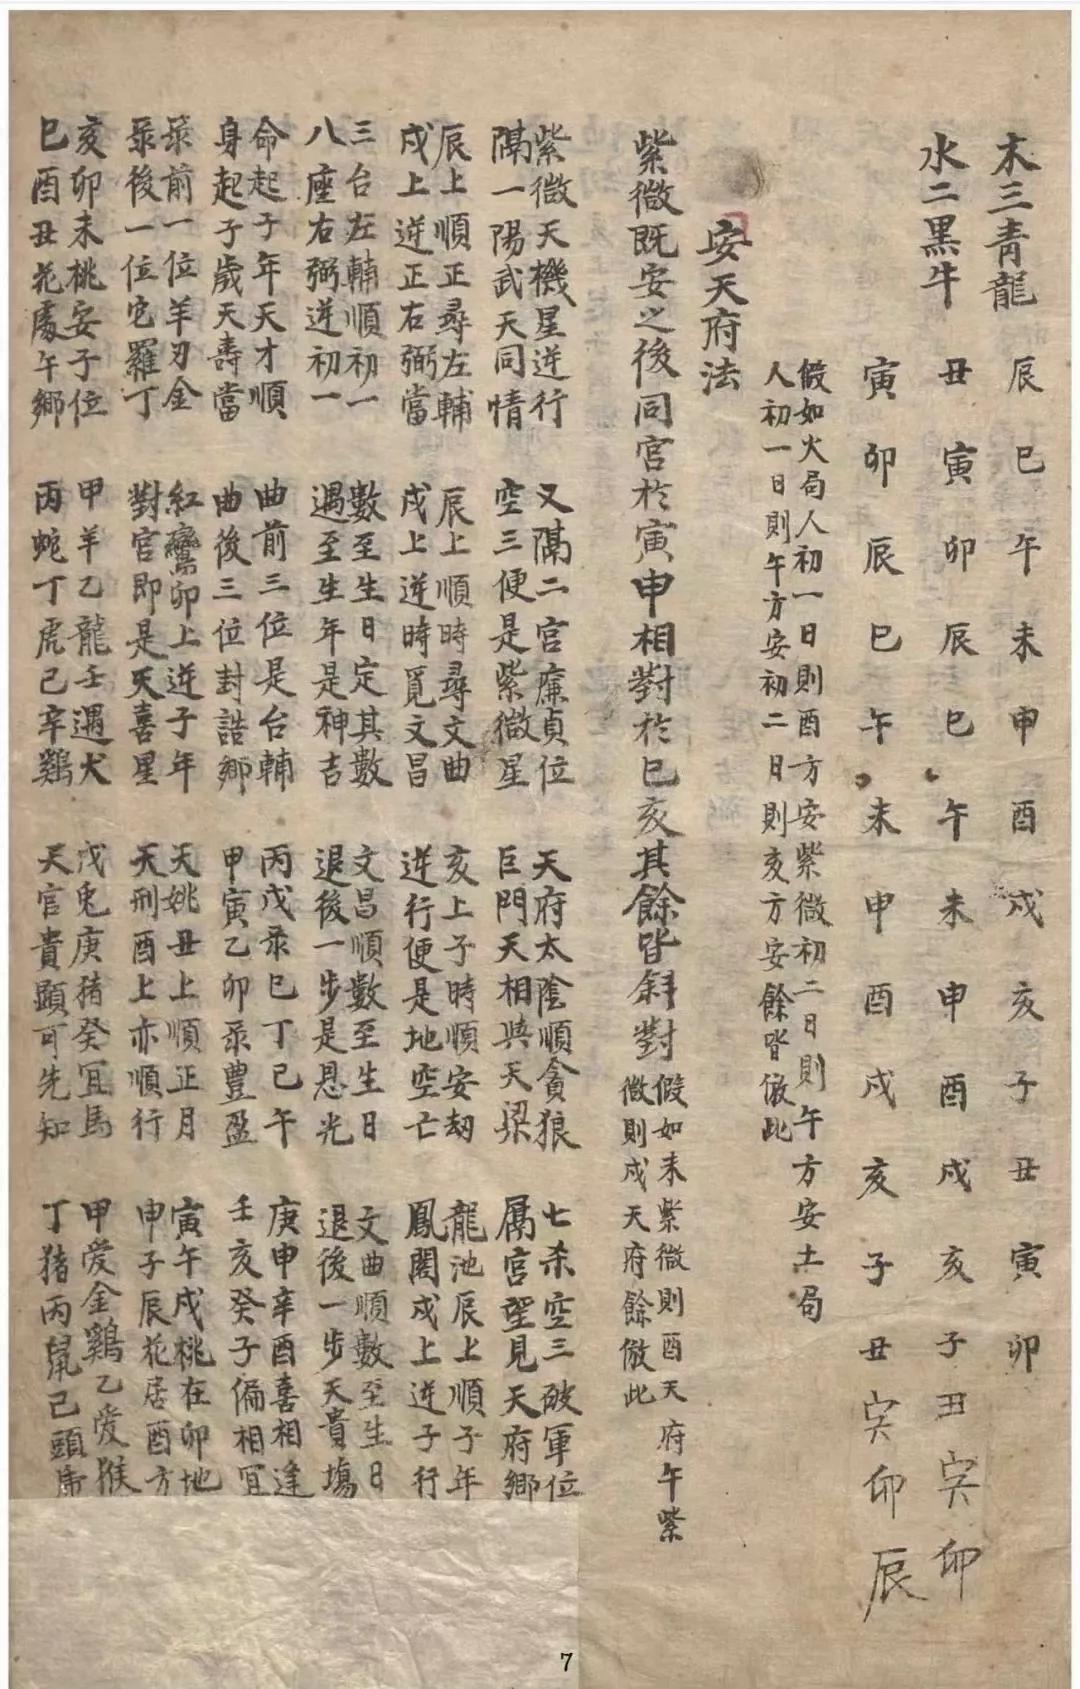 木三青龍 辰巳午未申酉戌亥子丑寅卯
水二黑牛 丑寅卯辰巳午未申酉戌亥子丑寅卯
寅卯辰巳午未申酉戌亥子丑寅卯辰
假如火局人初一日則酉方安紫微初二日則午方安土局
人初一日則午方安初二日則亥方安餘皆倣此
安天府法
紫微既安之後同宮於寅申相對於巳亥其餘皆斜對
假如未紫微則酉天府午紫
微則戌天府餘倣此
紫微天機星逆行 又隔二宮廉貞位 天府太陰順貪狼 七杀空三破軍位
隔一陽武天同情 空三便是紫微星 巨門天相與天梁 属宮望見天府鄉
辰上順正尋左輔 辰上順時尋文曲 亥上子時順安刼 龍池辰上順子年
戌上逆正右弼當 戌上逆時覓文昌 逆行便是地空亡 鳳閣戌上逆子行
三台左輔順初一 數至生日定其數 文昌順數至生日 文曲順數至生日
八座右弼逆初一 遇至生年是神吉 退後一步是恩光 退後一步天貴塲
命起子年天才順 曲前三位是台輔 丙戊彔巳丁己午 庚申辛酉喜相逢
身起子歲天壽當 曲後三位封誥鄉 甲寅乙卯彔豊盈 壬亥癸子偏相宜
彔前一位羊刃金 紅鸞卯上逆子年 天姚丑上順正月 寅午戌桃在卯地
彔後一位它羅丁 對宮即是天喜星 天刑酉上亦順行 申子辰花居酉方
亥卯未桃安子位 甲羊乙龍壬遇犬 戊兎庚猪癸宜馬 甲爱金鷄乙爱猴
巳酉丑花處午鄉 丙蛇丁虎己辛鷄 天官貴顕可先知 丁猪丙鼠己頭
7